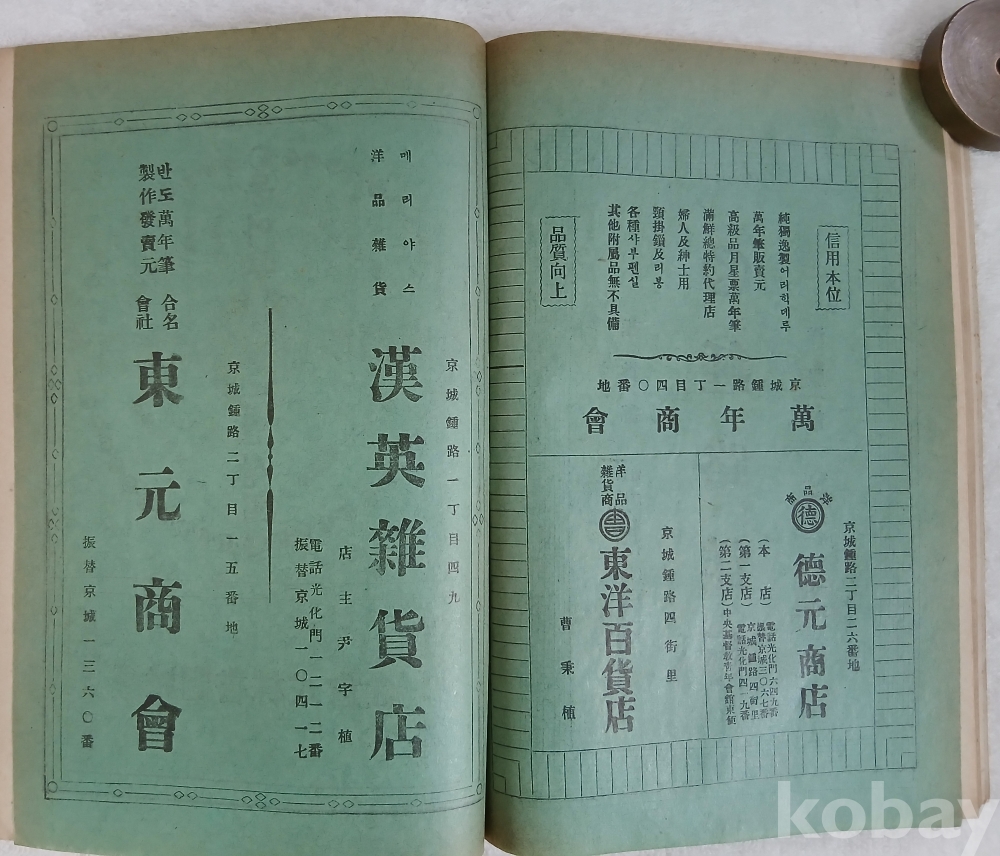 信用本位
純獨逸製어러히메루
萬年筆販賣元
高級品月星票萬年筆
滿鮮總特約代理店
婦人及紳士用
頸掛鎖及리봉
各種샤부펜실
其他附屬品無不具備
品質向上
京城鍾路一丁目四〇番地
萬年商會
京城鍾路二丁目二六番地
洋品商
德
德元商店
(本店)電話光化門六四九番
振替京城三〇六七番
(第一支店)京城鍾路四街里
電話光化門四一九番
(第二支店)中央基督敎靑年會館東便
京城鍾路四街里
洋品
雜貨商
東洋百貨店
曹秉植
京城鍾路一丁目四九
메리야스
洋品雜貨
漢英雜貨店
店主尹宇植
電話光化門一二一二番
振替京城一〇四一七
京城鍾路二丁目一五番地
반도萬年筆
製作發賣元
合名
會社
東元商會
振替京城一三六〇番
kobay